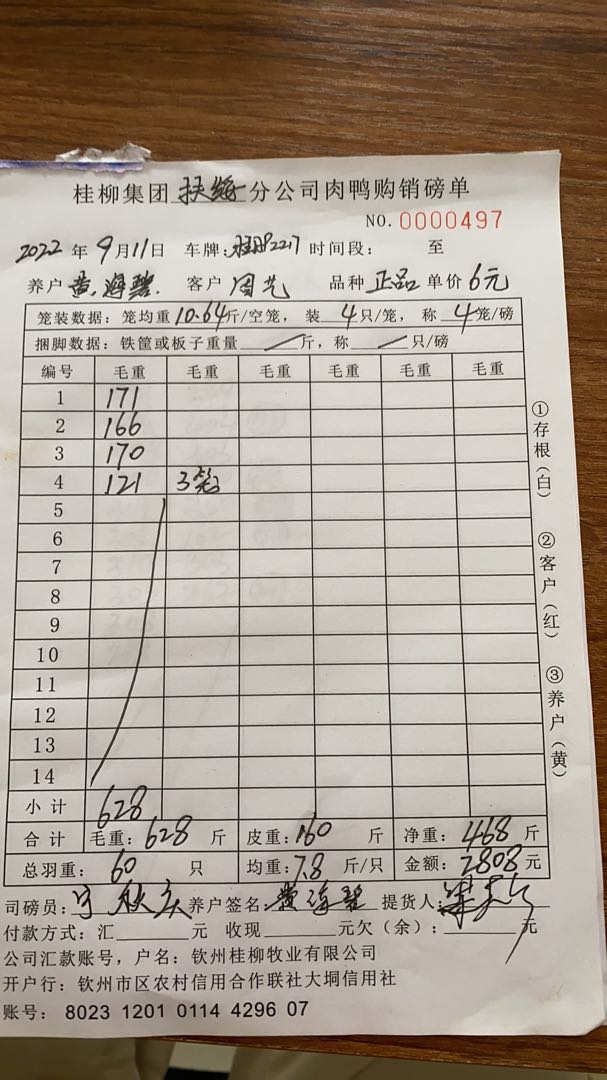 桂柳集团 扶绥 分公司肉鸭购销磅单
NO. 0000497
2022 年 9 月 11 日 车牌: 2217 时间段: 至
养户 黄海碧 客户 周艺 品种 正品 单价 6元
笼装数据: 笼均重 10.64 斤/空笼, 装 4 只/笼, 称 4 笼/磅
捆脚数据: 铁筐或板子重量 / 斤, 称 / 只/磅
编号 毛重 毛重 毛重 毛重 毛重 毛重
1 171
2 166
3 170
4 121 3笼
5
6
7
8
9
10
11
12
13
14
小计 628
合计 毛重: 628 斤 皮重: 160 斤 净重: 468 斤
总羽重: 60 只 均重: 7.8 斤/只 金额: 2808 元
司磅员: 养户签名: 黄海碧 提货人:
付款方式: 汇 元 收现 元欠(余): 元
公司汇款账号, 户名: 钦州桂柳牧业有限公司
开户行: 钦州市区农村信用合作联社大垌信用社
账号: 8023 1201 0114 4296 07
①存根(白)
②客户(红)
③养户(黄)